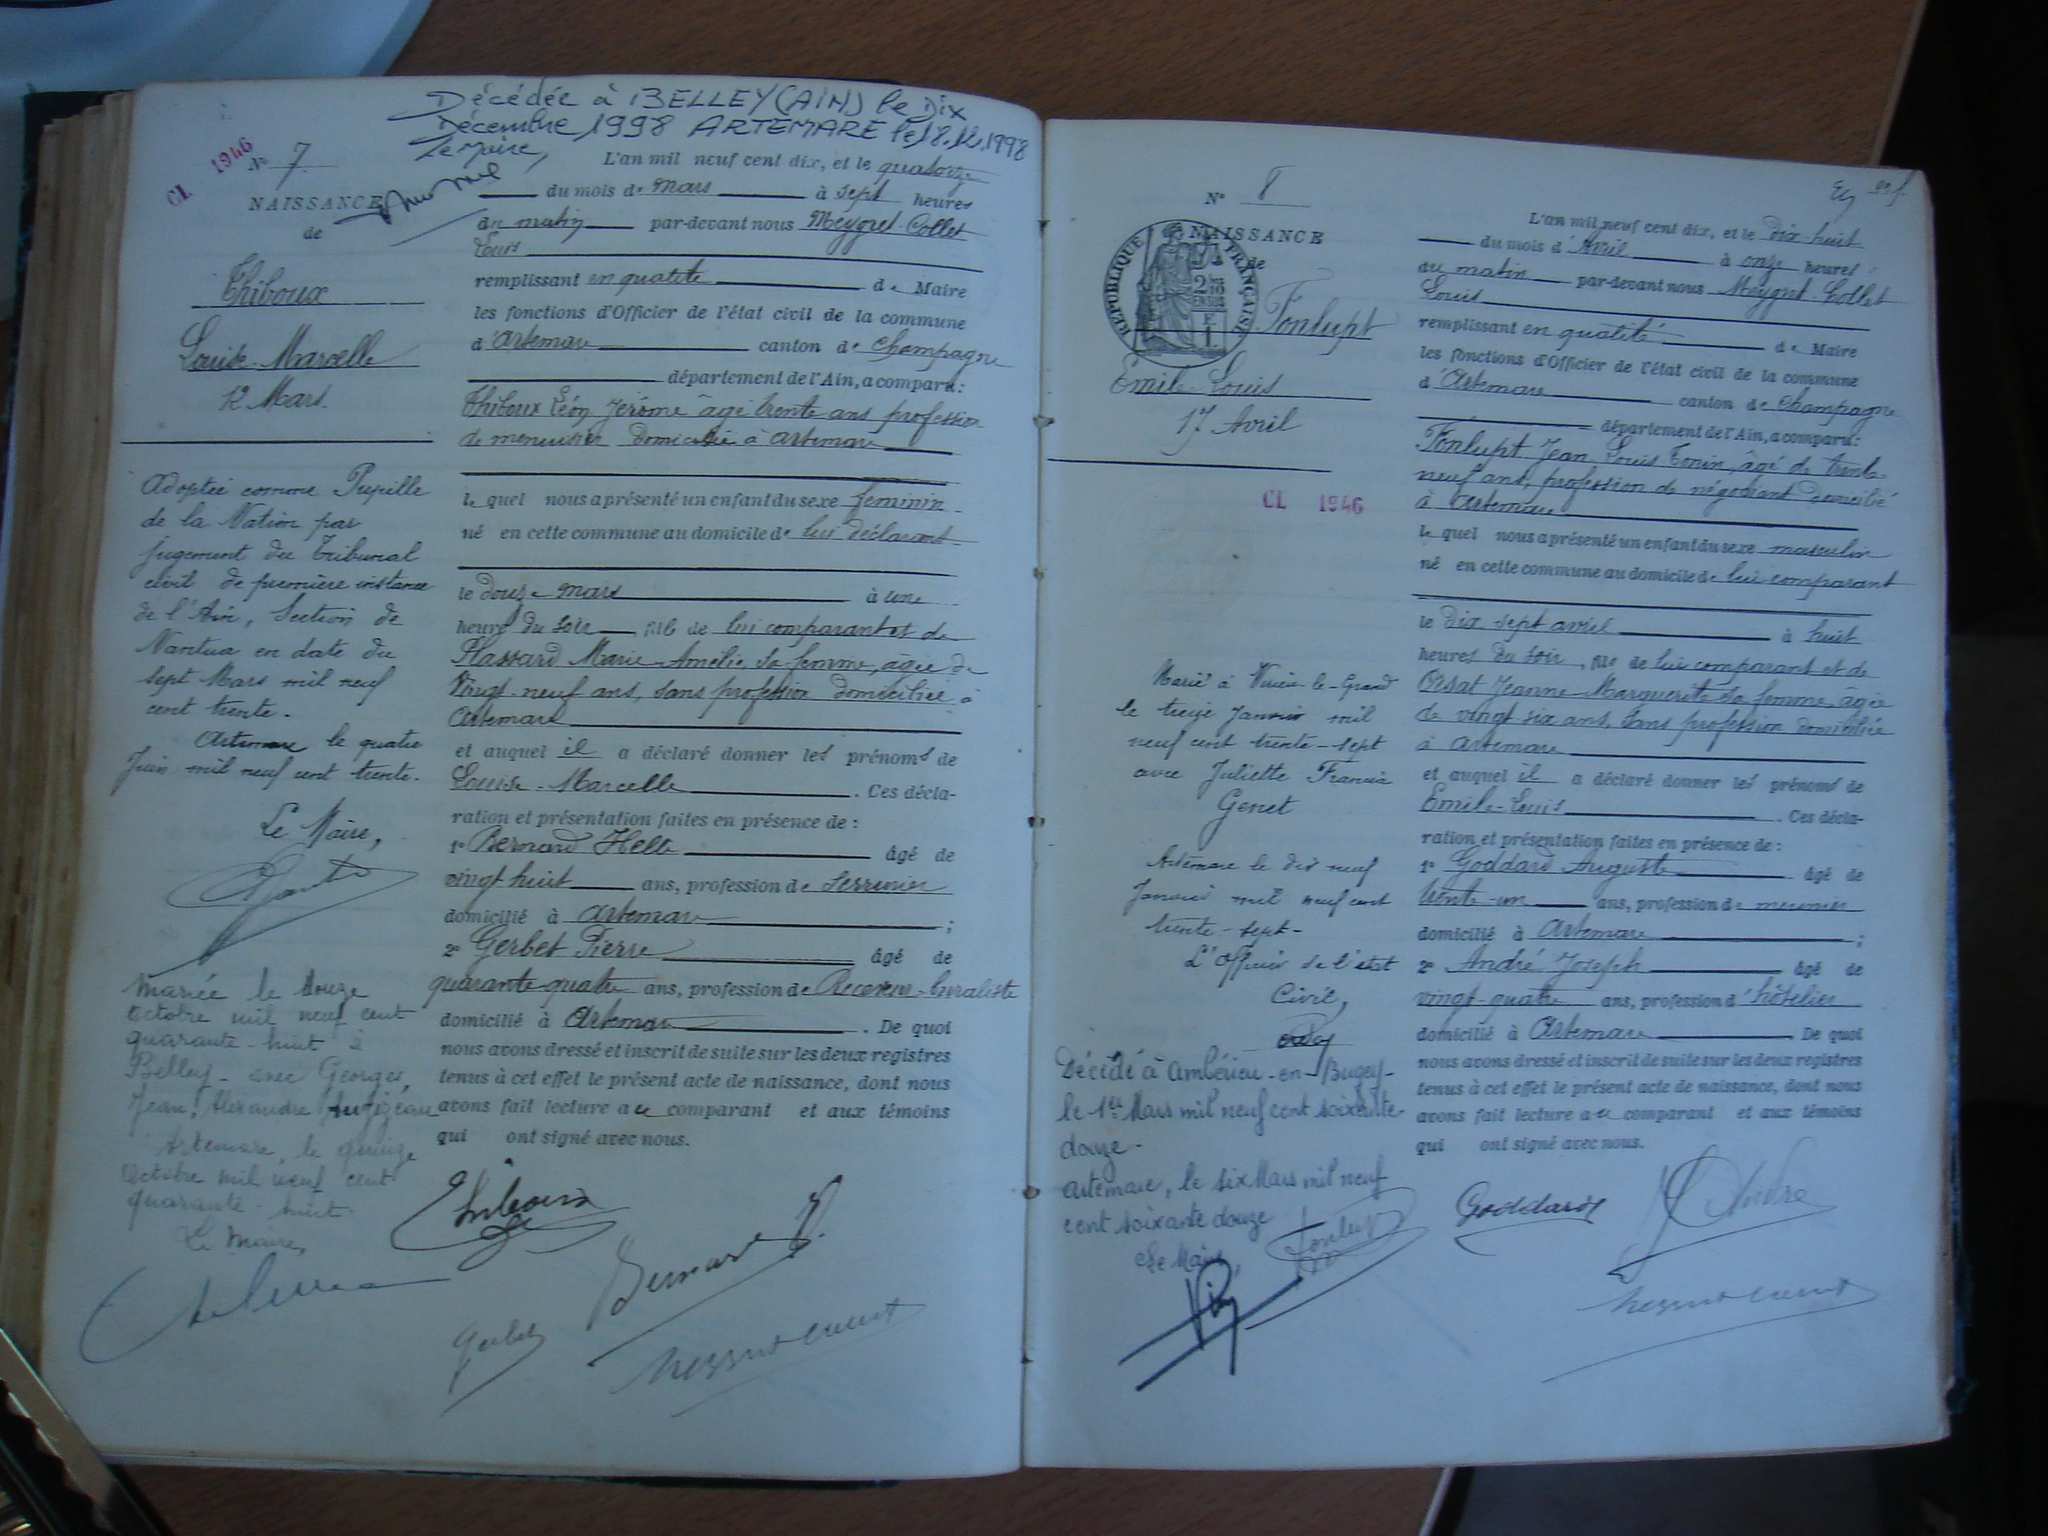 Décédée à BELLEY (AIN) le Dix
Décembre 1998 ARTEMARE le 18.12.1998
Le Maire,
CL 1946
N° 7
NAISSANCE
de
Thiboux
Louise-Marcelle
12 Mars.
Adoptée comme Pupille
de la Nation par
jugement du Tribunal
civil de première instance
de l'Ain, Section de
Nantua en date du
sept Mars mil neuf
cent trente.
Artemare le quatre
Juin mil neuf cent trente.
Le Maire,
Mariée le douze
octobre mil neuf cent
quarante-huit à
Belley - avec Georges,
Jean, Alexandre
Artemare, le quinze
Octobre mil neuf cent
quarante-huit
Le Maire,
L'an mil neuf cent dix, et le quatorze
du mois de mars à sept heures
du matin par-devant nous Meygret-Collet
Louis
remplissant en qualité de Maire
les fonctions d'Officier de l'état civil de la commune
d'Artemare canton de Champagne
département de l'Ain, a comparu:
Thiboux Léon Jérôme âgé trente ans profession
de menuisier domicilié à Artemare
le quel nous a présenté un enfant du sexe féminin
né en cette commune au domicile de lui déclarant
le douze mars à une
heure du soir, fils de lui comparant et de
Plassard Marie-Amélie, sa femme, âgée de
vingt-neuf ans, sans profession domiciliée à
Artemare
et auquel il a déclaré donner les prénoms de
Louise-Marcelle. Ces décla-
ration et présentation faites en présence de :
1° Bernard Helle âgé de
vingt huit ans, profession de serrurier
domicilié à Artemare ;
2° Gerbet Pierre âgé de
quarante-quatre ans, profession de Receveur-buraliste
domicilié à Artemare. De quoi
nous avons dressé et inscrit de suite sur les deux registres
tenus à cet effet le présent acte de naissance, dont nous
avons fait lecture au comparant et aux témoins
qui ont signé avec nous.
Thiboux
Bernard H.
Gerbet
Meygret Collet
N° 8
NAISSANCE
de
RÉPUBLIQUE FRANÇAISE
Fonlupt
Emile-Louis
17 Avril
CL 1946
Marié à Virieu-le-Grand
le treize Janvier mil
neuf cent trente-sept
avec Juliette Francia
Genet
Artemare le dix neuf
Janvier mil neuf cent
trente-sept-
L'Officier de l'état
Civil,
Décédé à Ambérieu-en-Bugey-
le 1er Mars mil neuf cent soixante
douze-
Artemare, le six Mars mil neuf
cent soixante douze
Le Maire,
L'an mil neuf cent dix, et le dix huit
du mois d'Avril à onze heures
du matin par-devant nous Meygret-Collet
Louis
remplissant en qualité de Maire
les fonctions d'Officier de l'état civil de la commune
d'Artemare canton de Champagne
département de l'Ain, a comparu:
Fonlupt Jean Louis Tonin, âgé de trente
neuf ans, profession de négociant domicilié
à Artemare
le quel nous a présenté un enfant du sexe masculin
né en cette commune au domicile de lui comparant
le dix sept avril à huit
heures du soir, fils de lui comparant et de
Orsat Jeanne-Marguerite sa femme, âgée
de vingt six ans, sans profession domiciliée
à Artemare
et auquel il a déclaré donner les prénoms de
Emile-Louis. Ces décla-
ration et présentation faites en présence de :
1° Goddard Auguste âgé de
trente-un ans, profession de meunier
domicilié à Artemare ;
2° André Joseph âgé de
vingt-quatre ans, profession d'hôtelier
domicilié à Artemare De quoi
nous avons dressé et inscrit de suite sur les deux registres
tenus à cet effet le présent acte de naissance, dont nous
avons fait lecture au comparant et aux témoins
qui ont signé avec nous.
Fonlupt
Goddard
J André
Meygret Collet